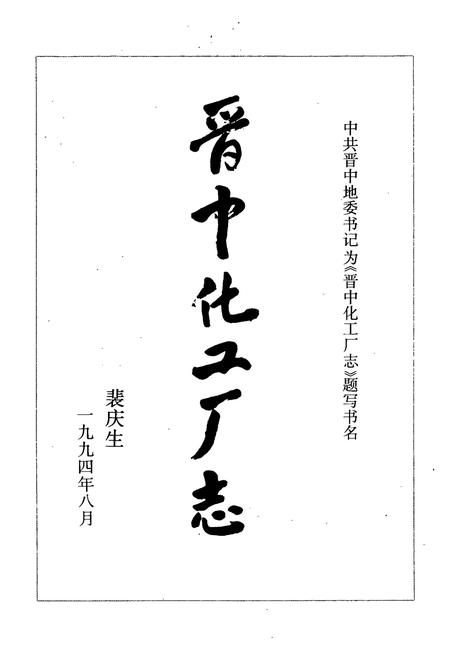 中共晋中地委书记为《晋中化工厂志》题写书名
晋中化工厂志
裴庆生
一九九四年八月